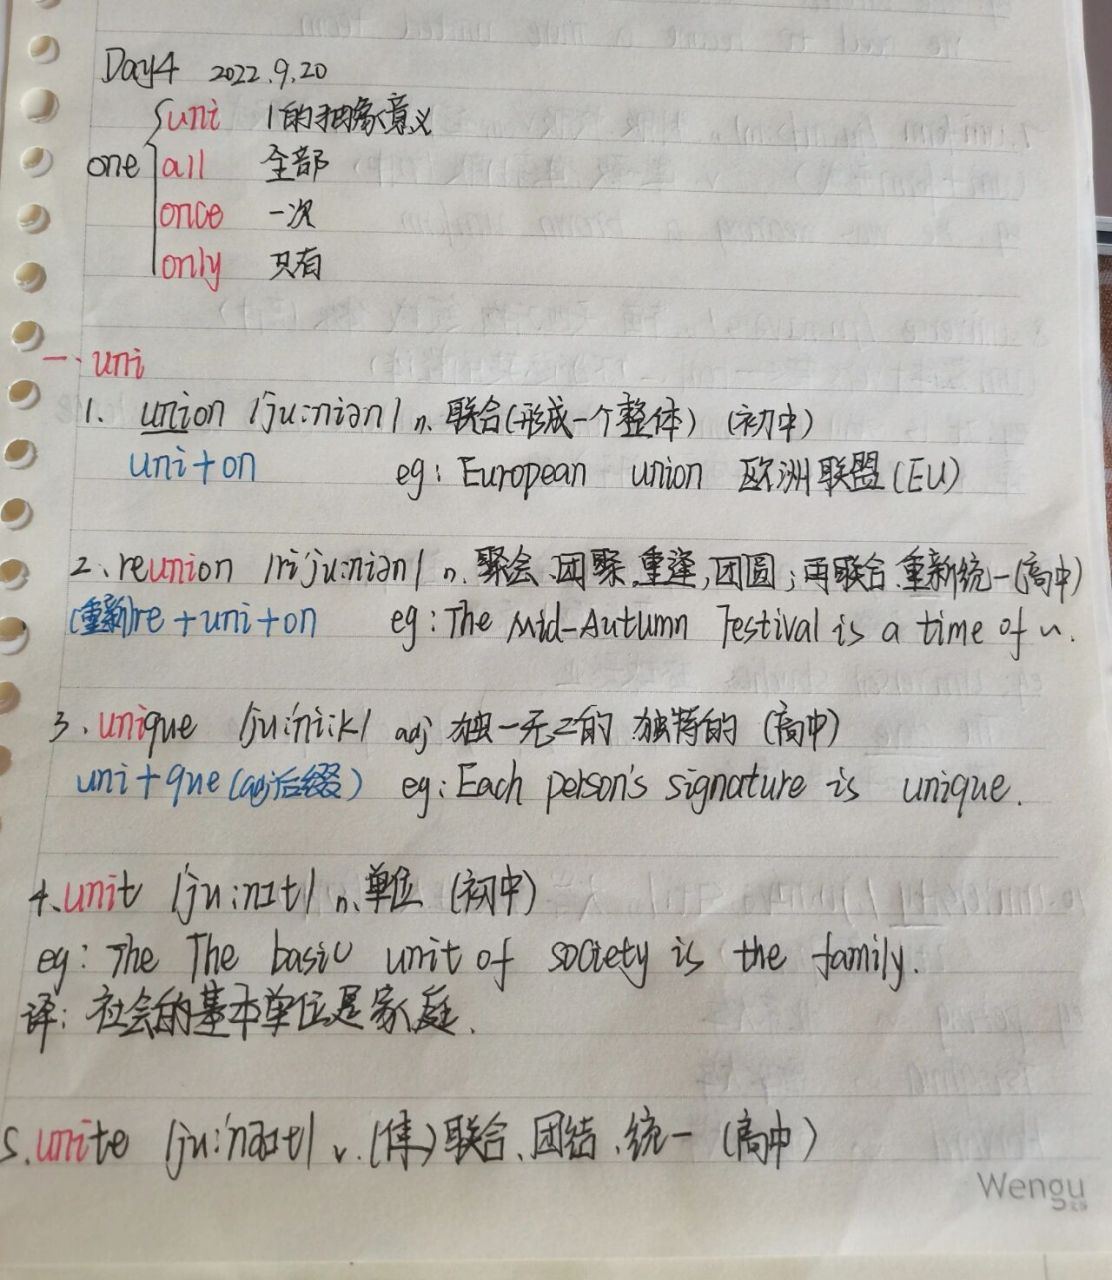 Day4 2022.9.20
uni 1的抽象意义
one all 全部
once 一次
only 只有
一、uni
1. union /ju:niən/ n. 联合(形成一个整体) (初中)
uni+on eg: European union 欧洲联盟(EU)
2、reunion /ri'ju:niən/ n. 聚会、团聚,重逢,团圆;再联合、重新统一(高中)
(重新)re+uni+on eg: The Mid-Autumn Festival is a time of ~.
3、unique /ju:'ni:k/ adj 独一无二的 独特的 (高中)
uni+que(adj后缀) eg: Each person's signature is unique.
4、unit /'ju:nɪt/ n、单位 (初中)
eg: The The basic unit of society is the family.
译: 社会的基本单位是家庭.
5.unite /ju:'naɪt/ v. (使)联合、团结、统一 (高中)
Wengu